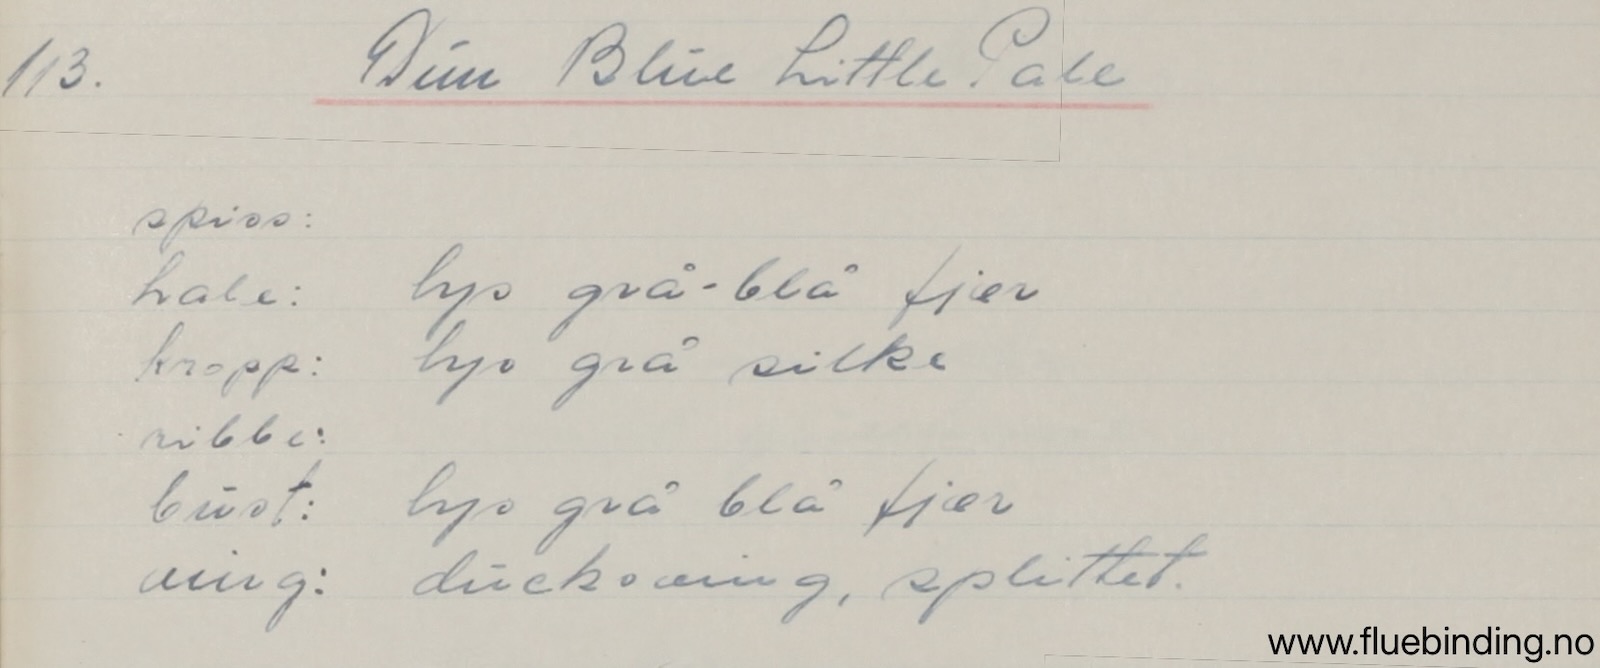 113. Dun Blue Little Pale
spiss:
hale: lys grå-blå fjær
kropp: lys grå silke
ribbe:
bust: lys grå blå fjær
ving: duckswing, splittet.
www.fluebinding.no